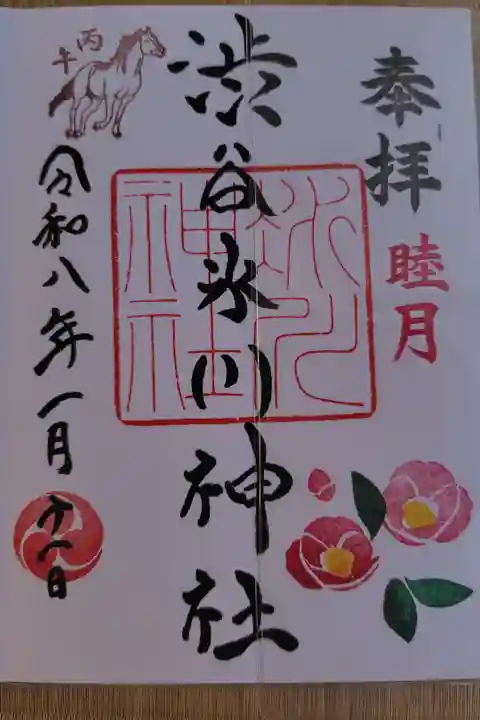 奉拝
睦月
渋谷氷川神社
氷川
神社
丙午
令和八年一月十一日